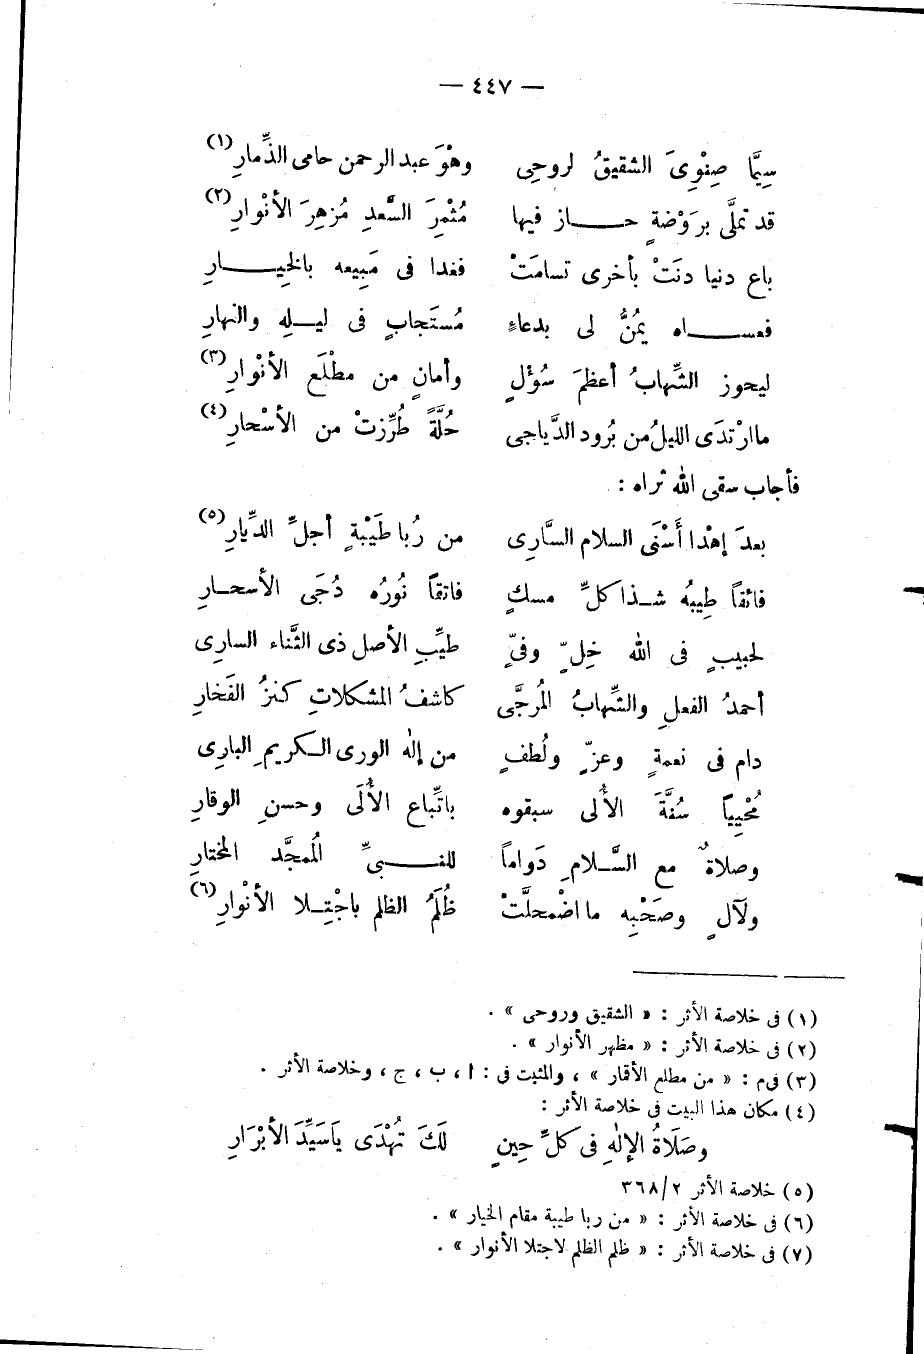 — ٤٤٧ —
سِيَّما صِنْوِىَ الشقيقُ لروحِى وهْوَ عبد الرحمن حامى الذِّمارِ (١)
قد تملَّى برَوْضةٍ حـــاز فيها مُثْمِرَ السَّعدِ مُزهِرَ الأنْوارِ (٢)
باع دنيا دنَتْ بأخرى تسامَتْ فغدا فى مَبِيعه بالخِيـــارِ
فعســـاه يمُنُّ لى بدعاءٍ مُستَجابٍ فى ليـلِه والنهارِ
ليحوز الشِّهابُ أعظمَ سُؤْلٍ وأمانٍ من مطْلَع الأنْوارِ (٣)
ماارْتدَى الليلُ من بُرود الدَّياجى حُلَّةً طُرِّزتْ من الأسْحارِ (٤)
فأجاب سقى الله ثراه :
بعدَ إهْدا أَسْنَى السلام السَّارِى من رُبا طَيْبةٍ أجلِّ الدِّيارِ (٥)
فائقاً طِيبُه شـذا كلِّ مسكٍ فاتقاً نُورُه دُجَى الأسحـارِ
لحبيبٍ فى الله خِلٍّ وفىٍّ طيِّبِ الأصل ذى الثَّناء السارِى
أحمدُ الفعلِ والشِّهابُ المُرجَّى كاشفُ المشكلاتِ كنزُ الفَخارِ
دام فى نعمةٍ وعزٍّ ولُطفٍ من إلٰه الورى الـكريمِ البارِى
مُحْيِياً سُنَّةَ الأُلى سبقوه باتِّباع الأُلَى وحسنِ الوقارِ
وصلاةٌ مع السَّـلامِ دَواماً للنبــىِّ المُمجَّد المختارِ
ولآلٍ وصَحْبِه ما اضْمحلَّتْ ظُلَمُ الظلم باجْتِـلا الأنْوارِ (٦)
(١) فى خلاصة الأثر : « الشقيق وروحى » .
(٢) فى خلاصة الأثر : « مظهر الأنوار » .
(٣) فى م : « من مطلع الأقمار » ، والمثبت فى : ا ، ب ، ج ، وخلاصة الأثر .
(٤) مكان هذا البيت فى خلاصة الأثر :
وصَلَاةُ الإلٰهِ فى كلِّ حِينٍ لَكَ تُهْدَى يَاسَيِّدَ الأبْرَارِ
(٥) خلاصة الأثر ٣٦٨/٢
(٦) فى خلاصة الأثر : « من ربا طيبة مقام الخيار » .
(٧) فى خلاصة الأثر : « ظلم الظلم لاجتلا الأنوار » .